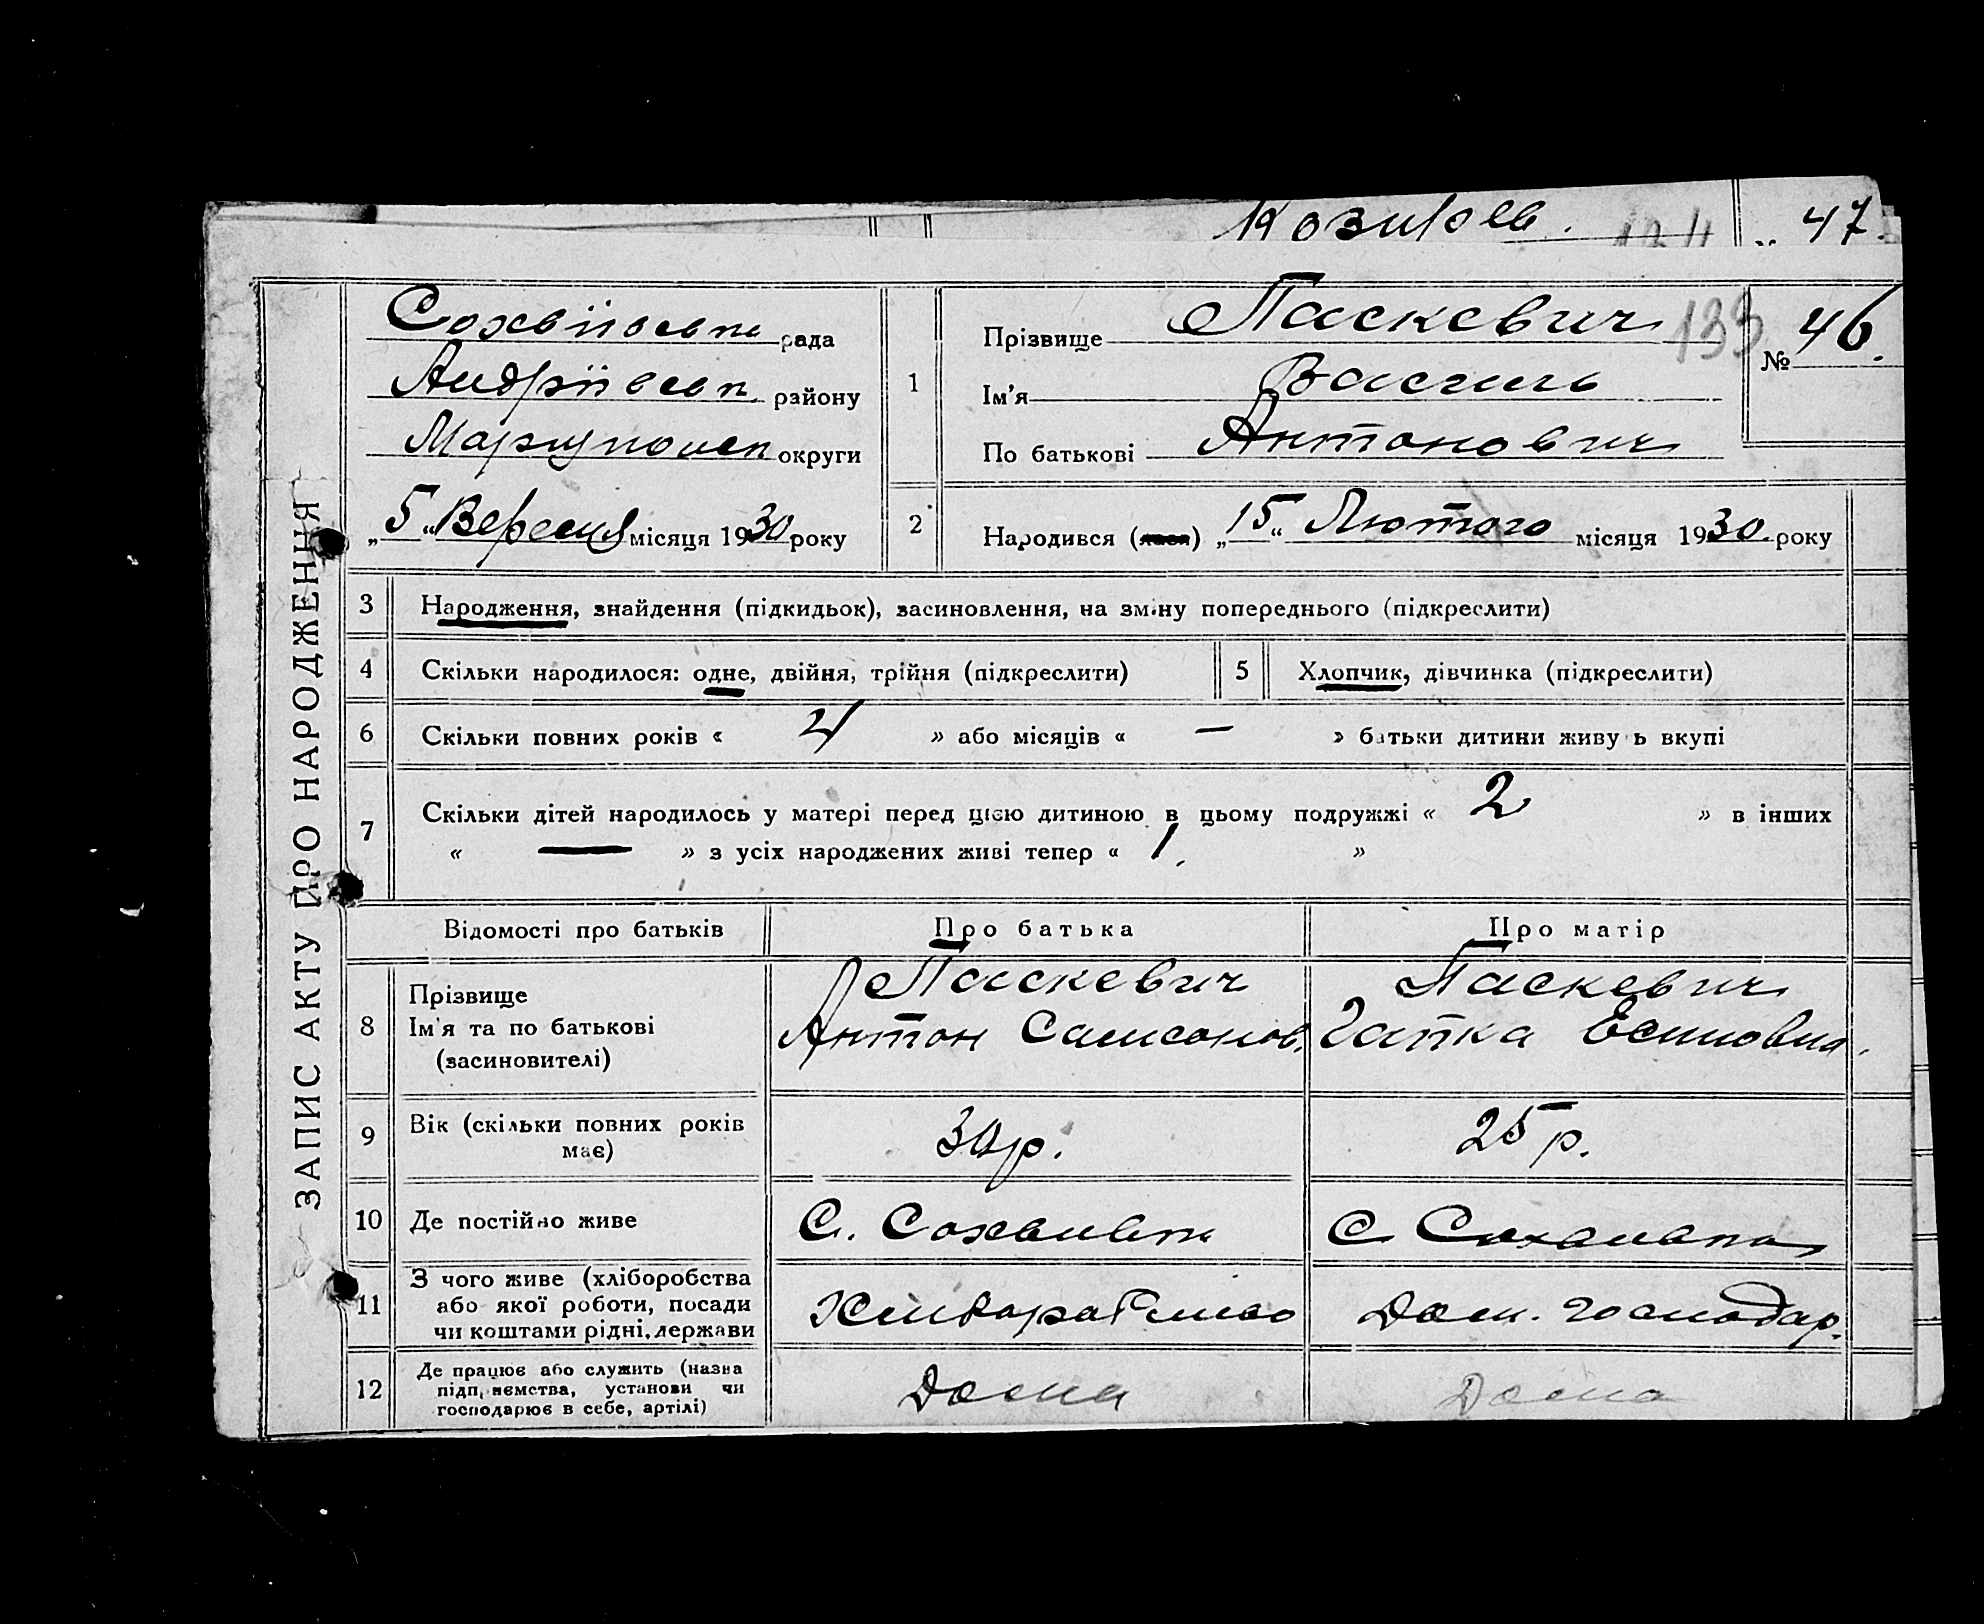 Козирєв. 47.
ЗАПИС АКТУ ПРО НАРОДЖЕННЯ
рада
Андріївськ району
Маріупольськ округи
„5“ Вересня місяця 1930 року
1
Прізвище Паскевич 133
Ім'я Василь
По батькові Антонович
№ 46.
2
Народився (лася) „15“ Лютого місяця 1930 року
3 Народження, знайдення (підкидьок), засиновлення, на зміну попереднього (підкреслити)
4 Скільки народилося: одне, двійня, трійня (підкреслити) 5 Хлопчик, дівчинка (підкреслити)
6 Скільки повних років « 4 » або місяців « — » батьки дитини живуть вкупі
7 Скільки дітей народилось у матері перед цією дитиною в цьому подружжі « 2 » в інших
« — » з усіх народжених живі тепер « 1. »
Відомості про батьків Про батька Про матір
8 Прізвище Паскевич Паскевич
Ім'я та по батькові Антон Самсонов. Гапка
(засиновителі)
9 Вік (скільки повних років 30 р. 25 р.
має)
10 Де постійно живе С. С
11 З чого живе (хліборобства
або якої роботи, посади Дом. господар.
чи коштами рідні, держави
12 Де працює або служить (назва
підприємства, установи чи Дома Дома
господарює в себе, артілі)